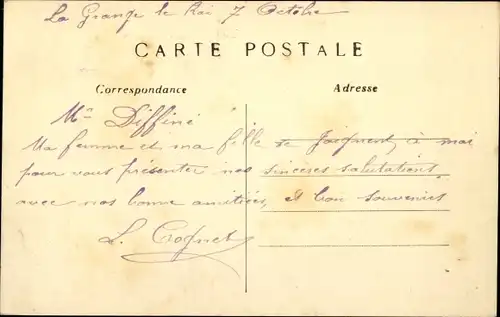 La Grange le Roi 7 Octobre
CARTE POSTALE
Correspondance
Adresse
Mr Diffiné
Ma femme et ma fille se joignent à moi
pour vous présenter nos sincères salutations,
avec nos bonne amitiées, et bon souvenirs
L. Cognet